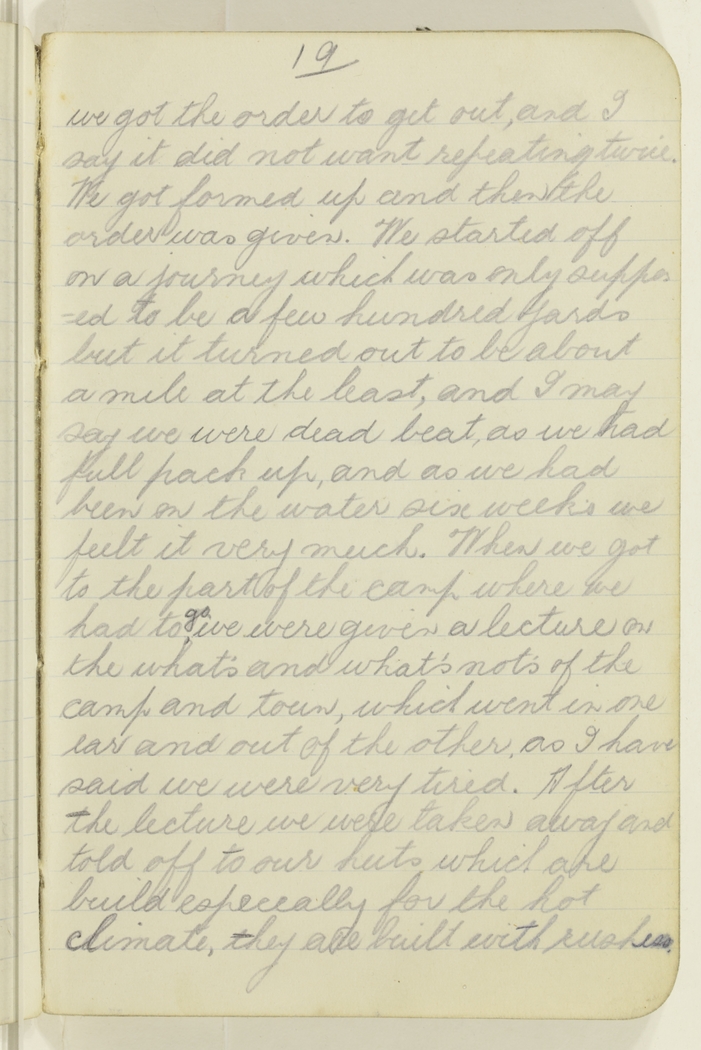 19
we got the order to get out, and I
say it did not want repeating twice.
We got formed up and then the
order was given. We started off
on a journey which was only suppos
=ed to be a few hundred yards
but it turned out to be about
a mile at the least, and I may
say we were dead beat, as we had
full pack up, and as we had
been on the water six weeks we
felt it very much. When we got
to the part of the camp where we
had to go, we were given a lecture on
the what's and what's not's of the
camp and town, which went in one
ear and out of the other, as I have
said we were very tired. After
the lecture we were taken away and
told off to our huts which are
build especeally for the hot
climate, they are built with rushes.